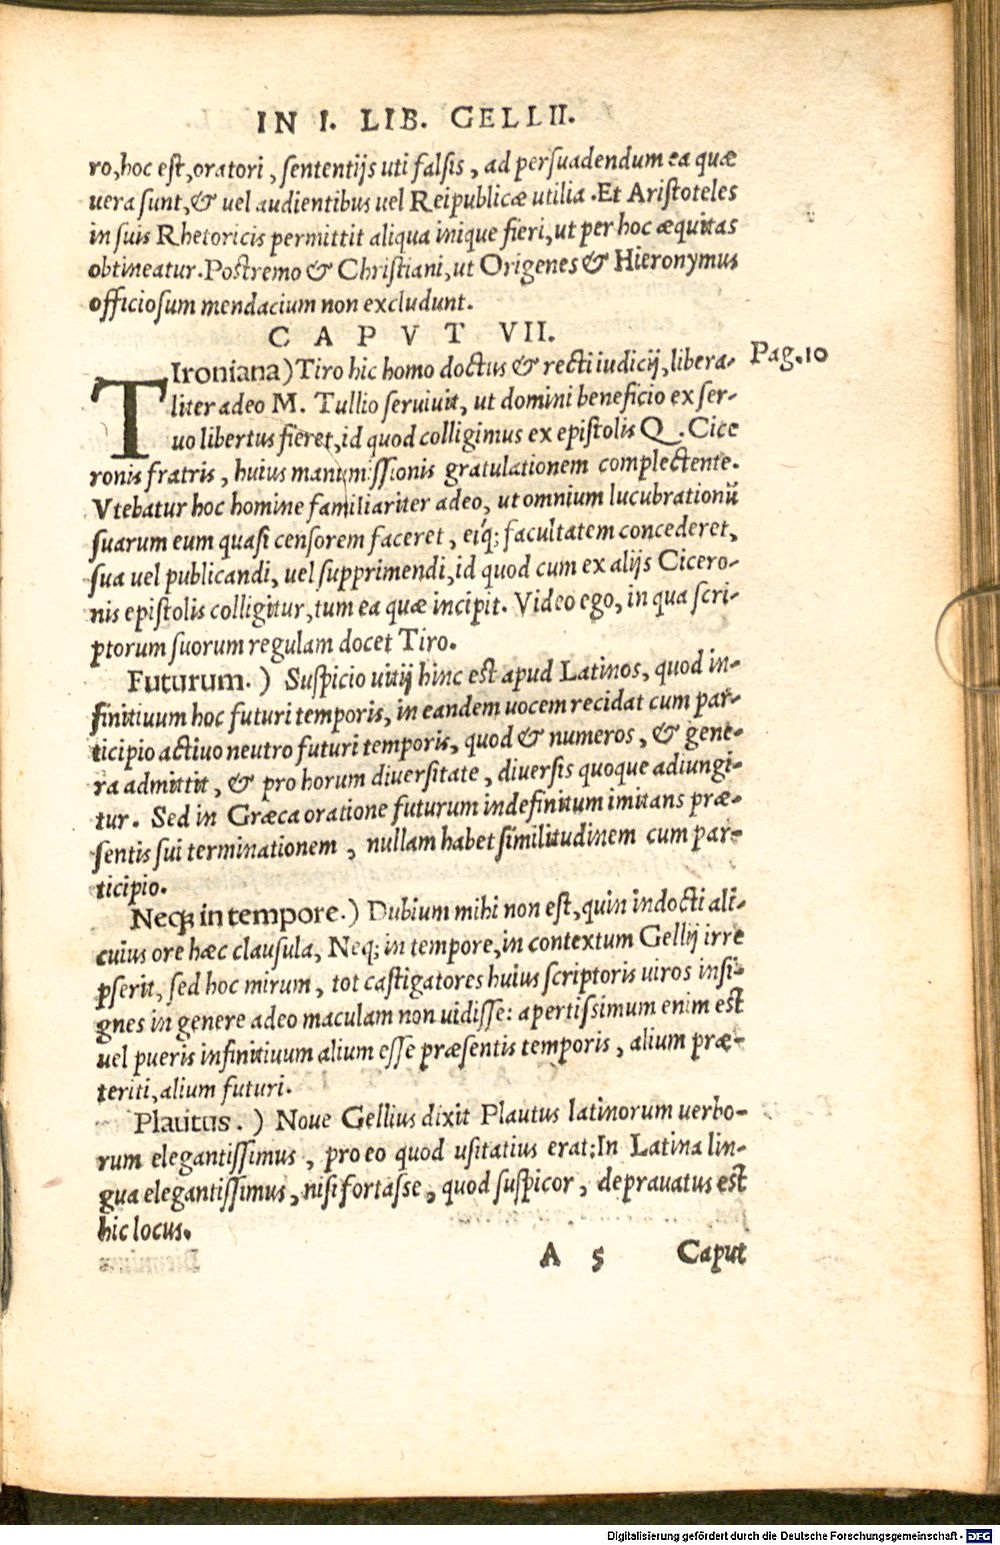 IN I. LIB. GELLII.
ro, hoc est, oratori, sententijs uti falsis, ad persuadendum ea quæ
uera sunt, & uel audientibus uel Reipublicæ utilia. Et Aristoteles
in suis Rhetoricis permittit aliqua inique fieri, ut per hoc æquitas
obtineatur. Postremo & Christiani, ut Origenes & Hieronymus
officiosum mendacium non excludunt.
CAPVT VII.
TIroniana) Tiro hic homo doctus & recti iudicij, libera- Pag. 10
liter adeo M. Tullio seruiuit, ut domini beneficio ex ser-
uo libertus fieret, id quod colligimus ex epistolis Q. Cice
ronis fratris, huius manumissionis gratulationem complectente.
Vtebatur hoc homine familiariter adeo, ut omnium lucubrationū
suarum eum quasi censorem faceret, eiq́; facultatem concederet,
sua uel publicandi, uel supprimendi, id quod cum ex alijs Cicero-
nis epistolis colligitur, tum ea quæ incipit. Video ego, in qua scri-
ptorum suorum regulam docet Tiro.
Futurum.) Suspicio uitij hinc est apud Latinos, quod in-
finitiuum hoc futuri temporis, in eandem uocem recidat cum par-
ticipio actiuo neutro futuri temporis, quod & numeros, & gene-
ra admittit, & pro horum diuersitate, diuersis quoque adiungi-
tur. Sed in Græca oratione futurum indefinitum imitans præ-
sentis sui terminationem, nullam habet similitudinem cum par-
ticipio.
Neq; in tempore.) Dubium mihi non est, quin indocti ali-
cuius ore hæc clausula, Neq; in tempore, in contextum Gellij irre
pserit, sed hoc mirum, tot castigatores huius scriptoris uiros insi-
gnes in genere adeo maculam non uidisse: apertissimum enim est
uel pueris infinitiuum alium esse præsentis temporis, alium præ-
teriti, alium futuri.
Plautus.) Noue Gellius dixit Plautus latinorum uerbo-
rum elegantissimus, pro eo quod usitatius erat: In Latina lin-
gua elegantissimus, nisi fortasse, quod suspicor, deprauatus est
hic locus.
A 5 Caput
Digitalisierung gefördert durch die Deutsche Forschungsgemeinschaft - DFG